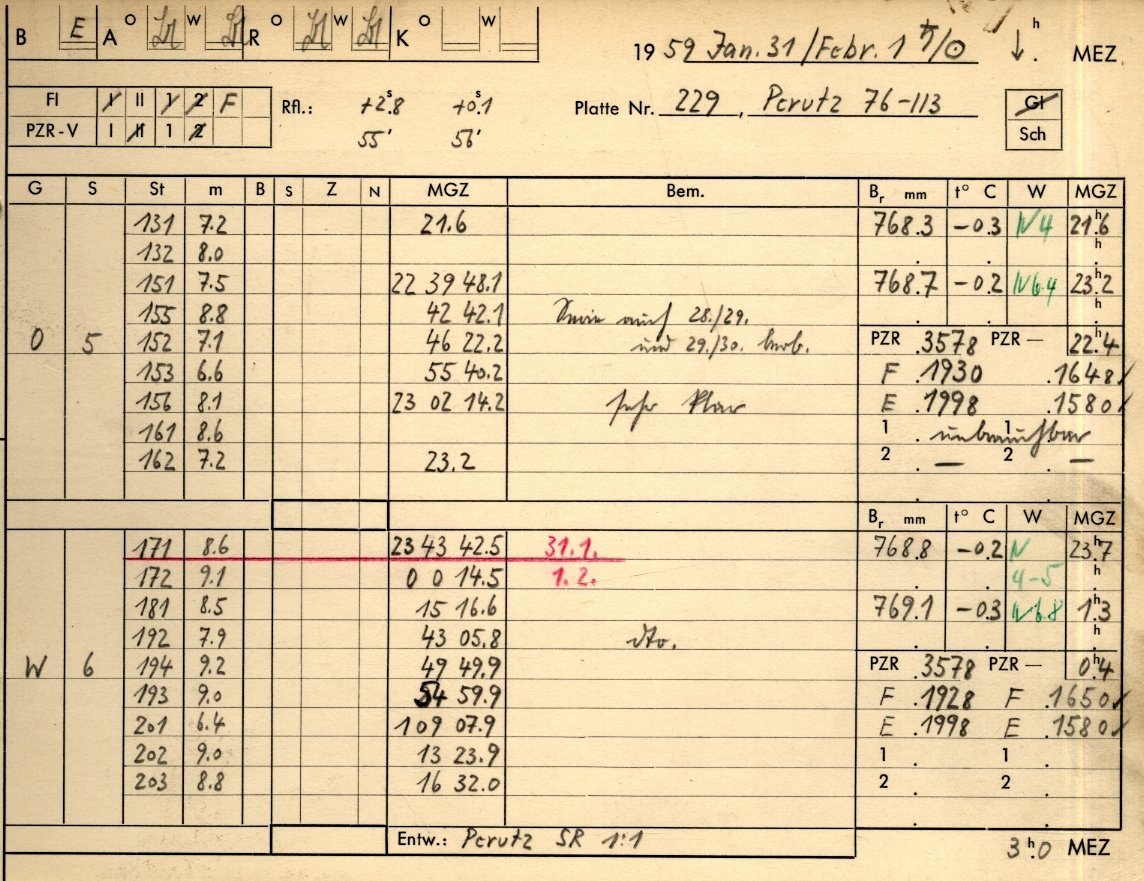 B E A O W R O W K O W
19 59 Jan. 31 / Febr. 1 ♄/☉ ↓ h. MEZ
FI I II 1 2 F Rfl.: +2ˢ.8 +0ˢ.1 Platte Nr. 229, Perutz 76-113 Gl
PZR-V I II 1 2 55′ 56′ Sch
G S St m B S Z N MGZ Bem. Bᵣ mm t° C W MGZ
131 7.2 21.6 768.3 -0.3 N 4 21ʰ.6
132 8.0
151 7.5 22 39 48.1 768.7 -0.2 N 6.4 23ʰ.2
155 8.8 42 42.1 auch 28./29.
O 5 152 7.1 46 22.2 und 29./30. beob. PZR .3578 PZR — 22ʰ.4
153 6.6 55 40.2 F .1930 .1648
156 8.1 23 02 14.2 sehr klar E .1998 .1580
161 8.6 1 . unbrauchbar 1
162 7.2 23.2 2 . — 2 . —
Bᵣ mm t° C W MGZ
171 8.6 23 43 42.5 31.1. 768.8 -0.2 N 23ʰ.7
172 9.1 0 0 14.5 1.2. 4-5
181 8.5 15 16.6 769.1 -0.3 N 6.8 1ʰ.3
192 7.9 43 05.8 dto.
W 6 194 9.2 49 49.9 PZR .3578 PZR — 0ʰ.4
193 9.0 54 59.9 F .1928 F .1650
201 6.4 1 09 07.9 E .1998 E .1580
202 9.0 13 23.9 1 . 1 .
203 8.8 16 32.0 2 . 2 .
Entw.: Perutz SR 1:1
3ʰ.0 MEZ